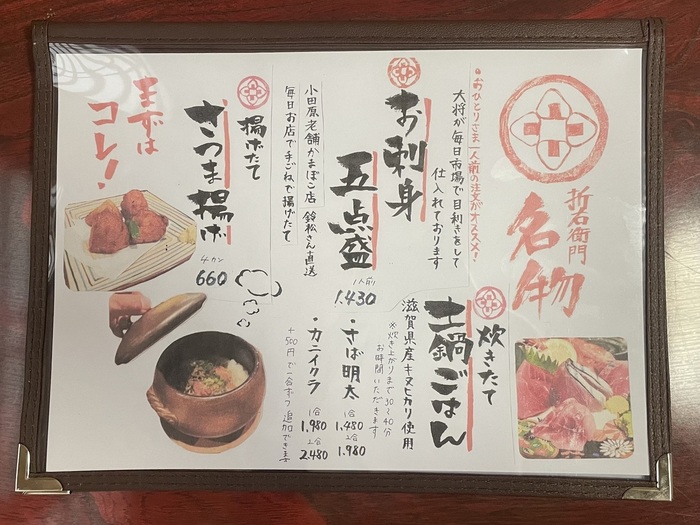 折右衛門
名物
・おひとりさま一人前の注文がオススメ！
大将が毎日市場で目利きをして
仕入れております
お刺身
五点盛
1人前
1,430
小田原老舗かまぼこ店 鈴松さん直送
毎日お店で手ごねで揚げたて
揚げたて
さつま揚げ
4カン
660
まずは
コレ！
炊きたて
土鍋ごはん
滋賀県産キヌヒカリ使用
※炊き上がりまで30～40分
お時間いただきます
・さば明太
1合
1,480
2合
1,980
・カニイクラ
1合
1,980
2合
2,480
+500円で一合ずつ追加できます